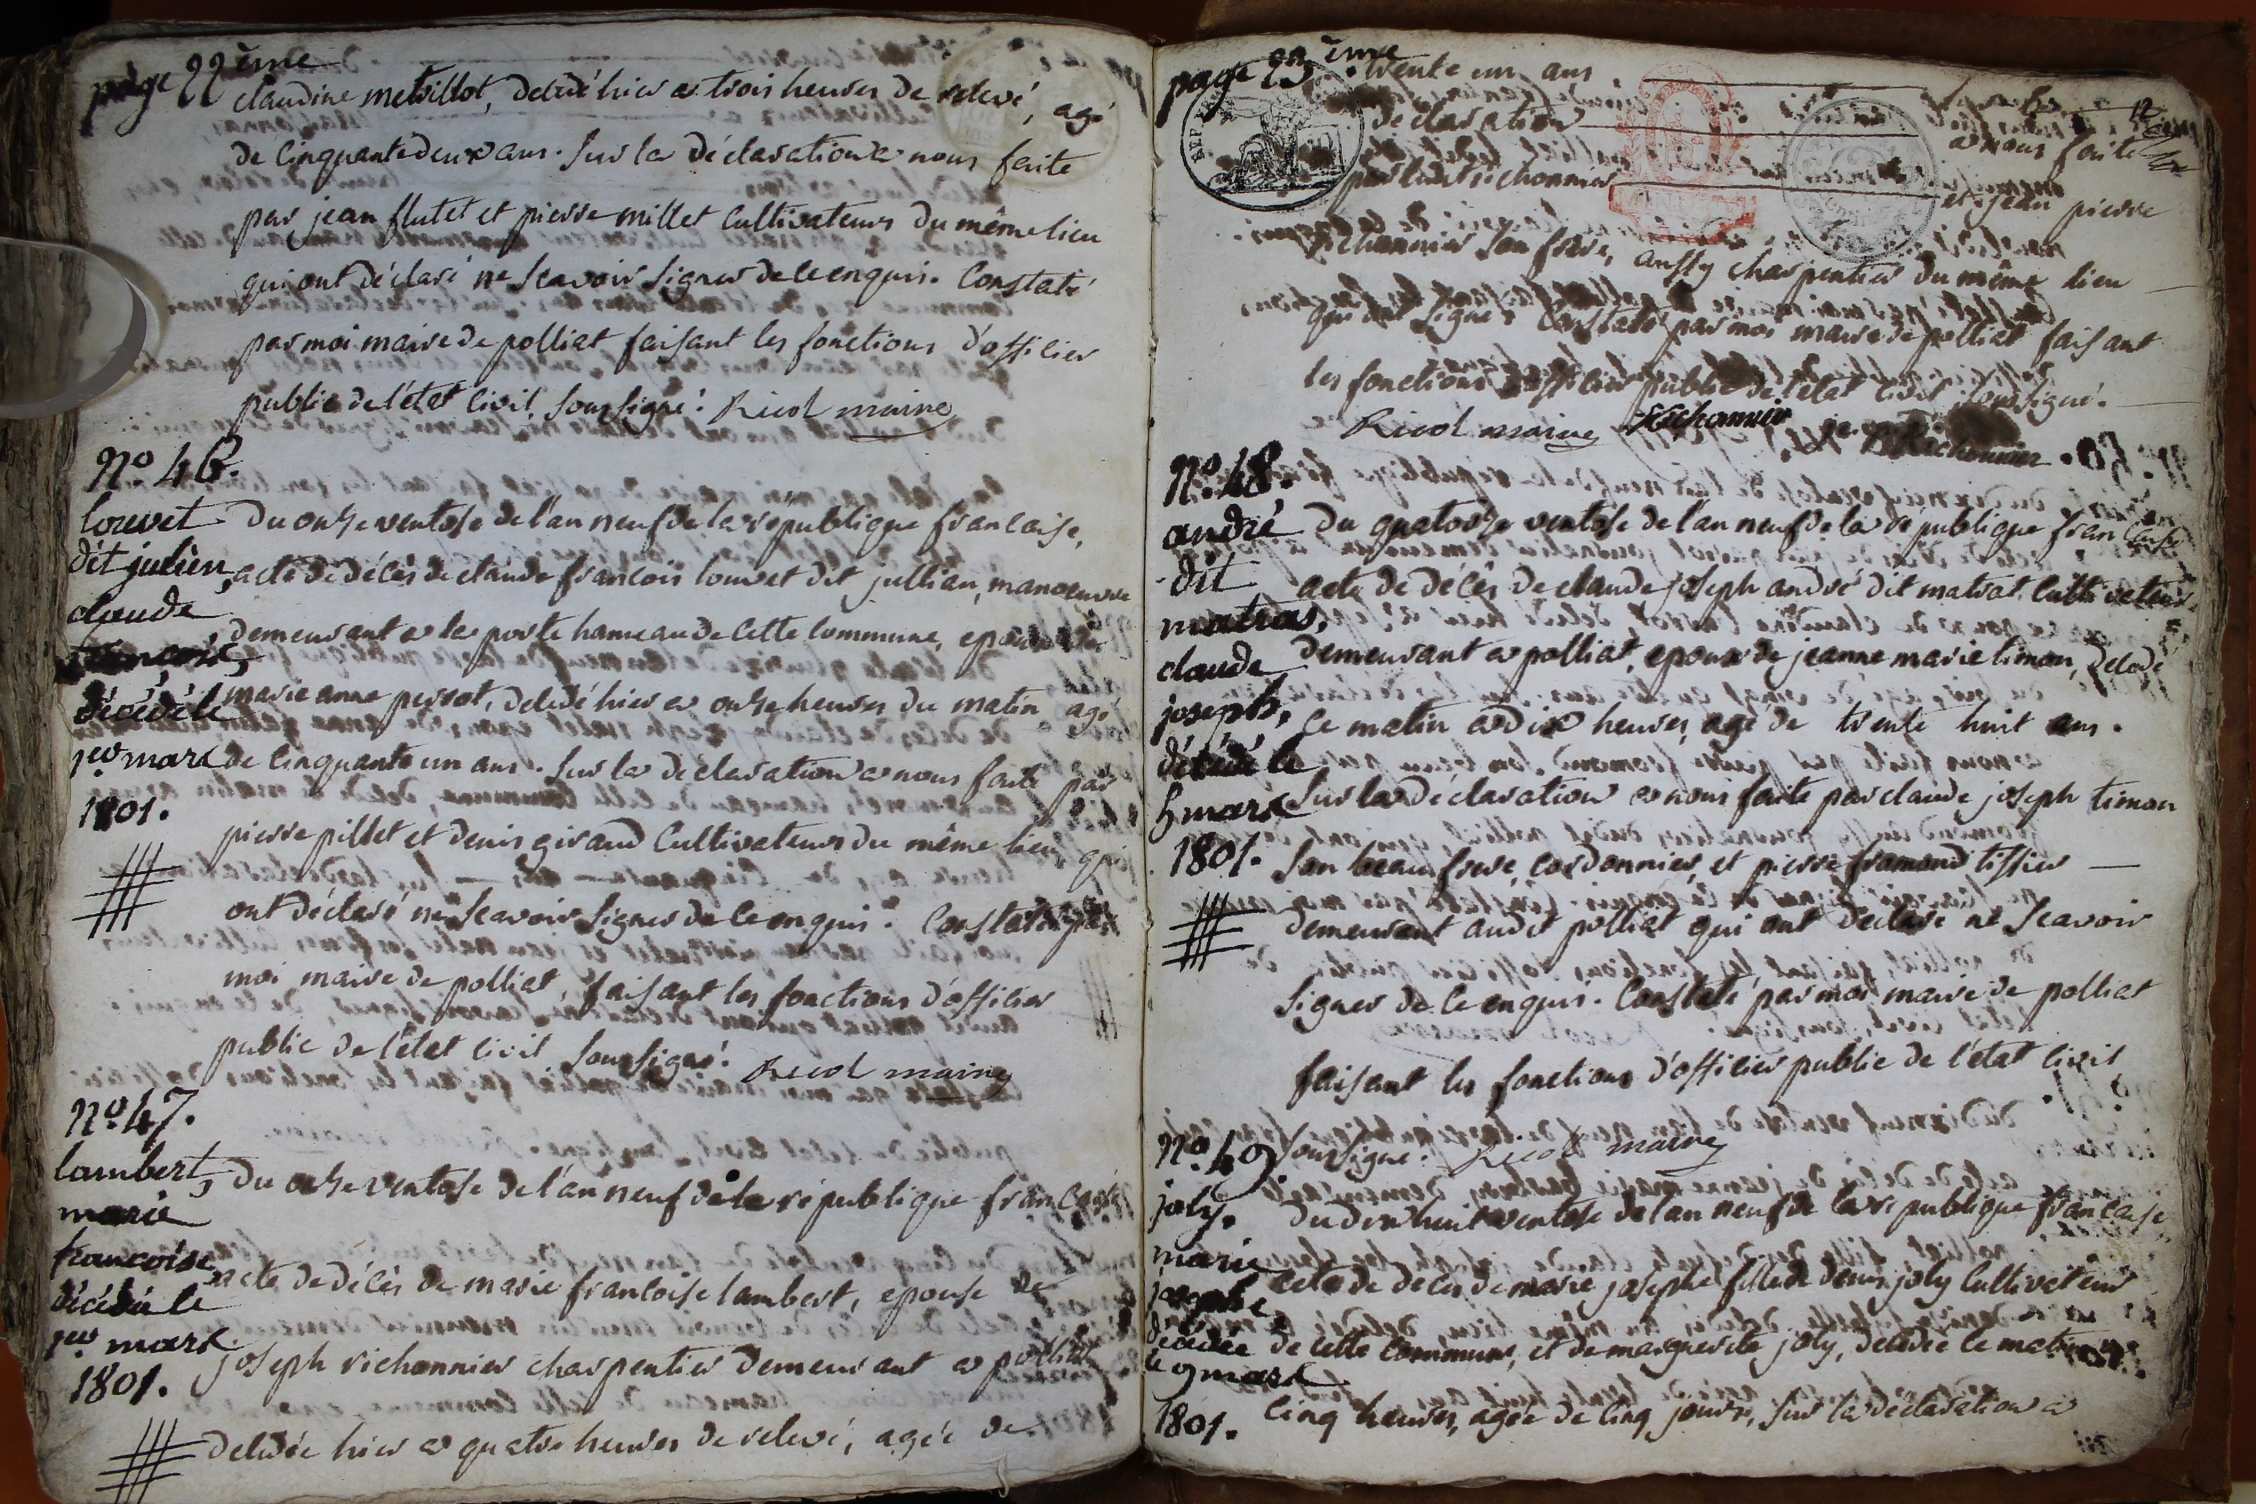 page 22ème
claudine metrillot, decedé hier a trois heures de relevé, agé
de cinquante deux ans. sur la déclaration a nous faite
par jean flutet et pierre millet cultivateurs du même lieu
qui ont déclaré ne scavoir signer de ce enquis. Constaté
par moi maire de polliat faisant les fonctions d'officier
public de l'état civil soussigné. Ricol maire
No. 46.
louvet
dit julien,
claude
francois,
décédé le
1er mars
1801.
Du onze ventose de l'an neuf de la république francaise,
acte de décès de claude francois louvet dit jullian, manoeuvre
demeurant a la poste hameau de cette commune, epoux de
marie anne perrot, decedé hier a onze heures du matin agé
de cinquante un ans. sur la declaration a nous faite par
pierre pillet et denis giraud cultivateurs du même lieu, qui
ont déclaré ne scavoir signer de ce enquis. Constaté par
moi maire de polliat, faisant les fonctions d'officier
public de l'état civil soussigné. Ricol maire
No. 47.
lambert,
marie
francoise,
décédée le
1er mars
1801.
Du onze ventose de l'an neuf de la république francaise
acte de décès de marie francoise lambert, epouse de
joseph richonnier charpentier demeurant a polliat
decedée hier a quatre heures de relevé, agée de
page 23.ème
12
trente un ans.
declaration a nous faite
par ledit richonnier et jean pierre
richonnier son frere, aussy charpentier du même lieu
qui ont signé. Constaté par moi maire de polliat faisant
les fonctions d'officier public de l'état civil soussigné.
Ricol maire Richonnier Richonnier
No. 48.
andré
dit
matras,
claude
joseph,
décédé le
5 mars
1801.
Du quatorze ventose de l'an neuf de la république francaise
acte de décès de claude joseph andré dit matrat cultivateur
demeurant a polliat, epoux de jeanne marie timon, decedé
ce matin a dix heures, agé de trente huit ans.
sur la déclaration a nous faite par claude joseph timon
son beau frere, cordonnier, et pierre framond tissier
demeurant audit polliat qui ont declaré ne scavoir
signer de ce enquis. Constaté par moi maire de polliat
faisant les fonctions d'officier public de l'état civil
soussigné. Ricol maire
No. 49.
joly.
marie
josephe
décédée
le 9 mars
1801.
du dix huit ventose de l'an neuf de la république francaise
acte de décès de marie josephe fille de denis joly cultivateur
de cette commune, et de marguerite joly, decedée ce matin a
cinq heures, agée de cinq jours, sur la déclaration a